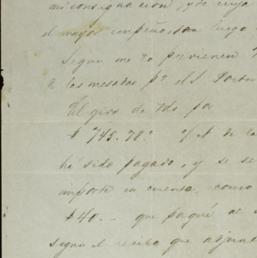 mi consignación, y de cuya
el mayor empeño son luego
según me lo previenen
en las mesadas pr el S.
El giro de Uds. por
$ 745.70 a de la
ha sido pagado, y se se
importe en cuenta, como
$40.— que pagué a
según el recibo que adjun